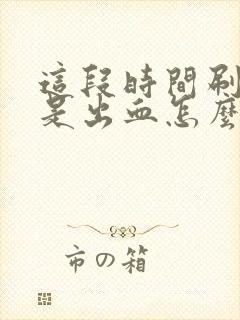 這段時間刷
是出血怎麼
市の箱